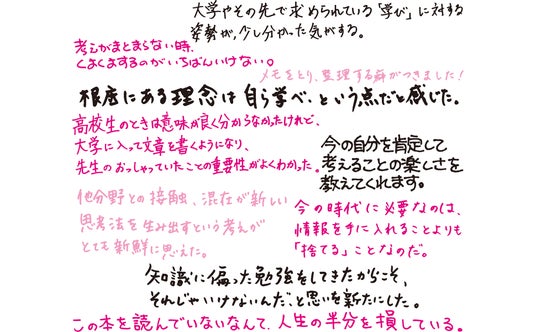 大学やその先で求められている「学び」に対する
姿勢が、少し分かった気がする。
考えがまとまらない時、
くよくよするのがいちばんいけない。
メモをとり、整理する癖がつきました!
根底にある理念は「自ら学べ」という点だと感じた。
高校生のときは意味が良く分からなかったけれど、
大学に入って文章を書くようになり、
先生のおっしゃっていたことの重要性がよくわかった。
今の自分を肯定して
考えることの楽しさを
教えてくれます。
他分野との接触、混在が新しい
思考法を生み出すという考えが
とても新鮮に思えた。
今の時代に必要なのは、
情報を手に入れることよりも
「捨てる」ことなのだ。
知識に偏った勉強をしてきたからこそ、
それじゃいけないんだ、と思いを新たにした。
この本を読んでいないなんて、人生の半分を損している。